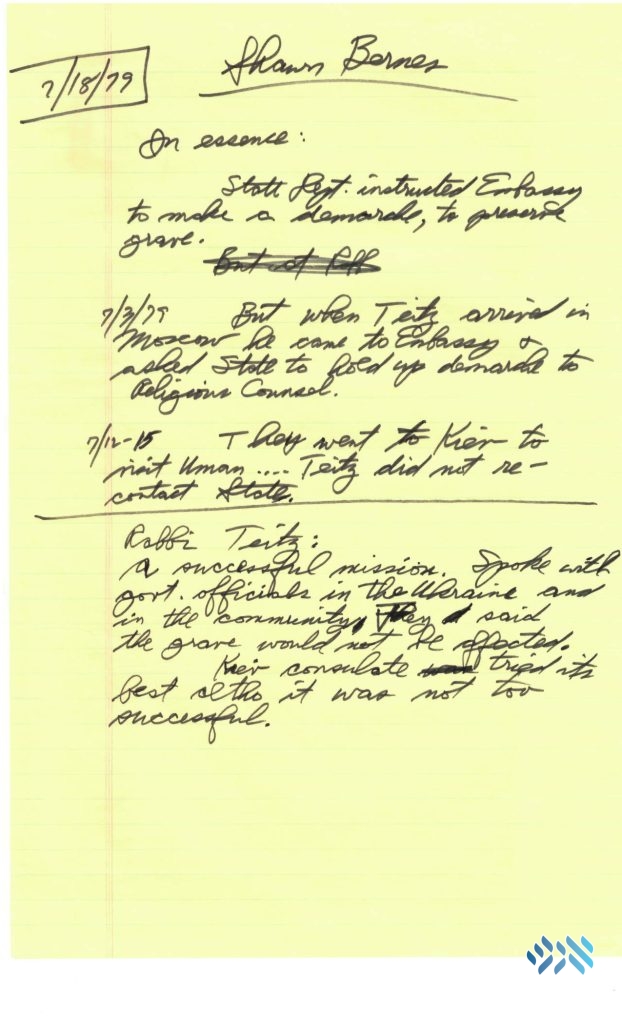 7/18/79
Shawn Bernes
In essence:
State Dept. instructed Embassy
to make a demarche, to preserve
grave.
But at
7/3/79 But when Teitz arrived in
Moscow he came to Embassy &
asked State to hold up demarche to
Religious Counsel.
7/12-15 They went to Kiev to
visit Uman .... Teitz did not re-
contact State.
Rabbi Teitz:
A successful mission. Spoke with
govt. officials in the Ukraine and
in the community. They said
the grave would not be affected.
Kiev consulate tried its
best altho it was not too
successful.